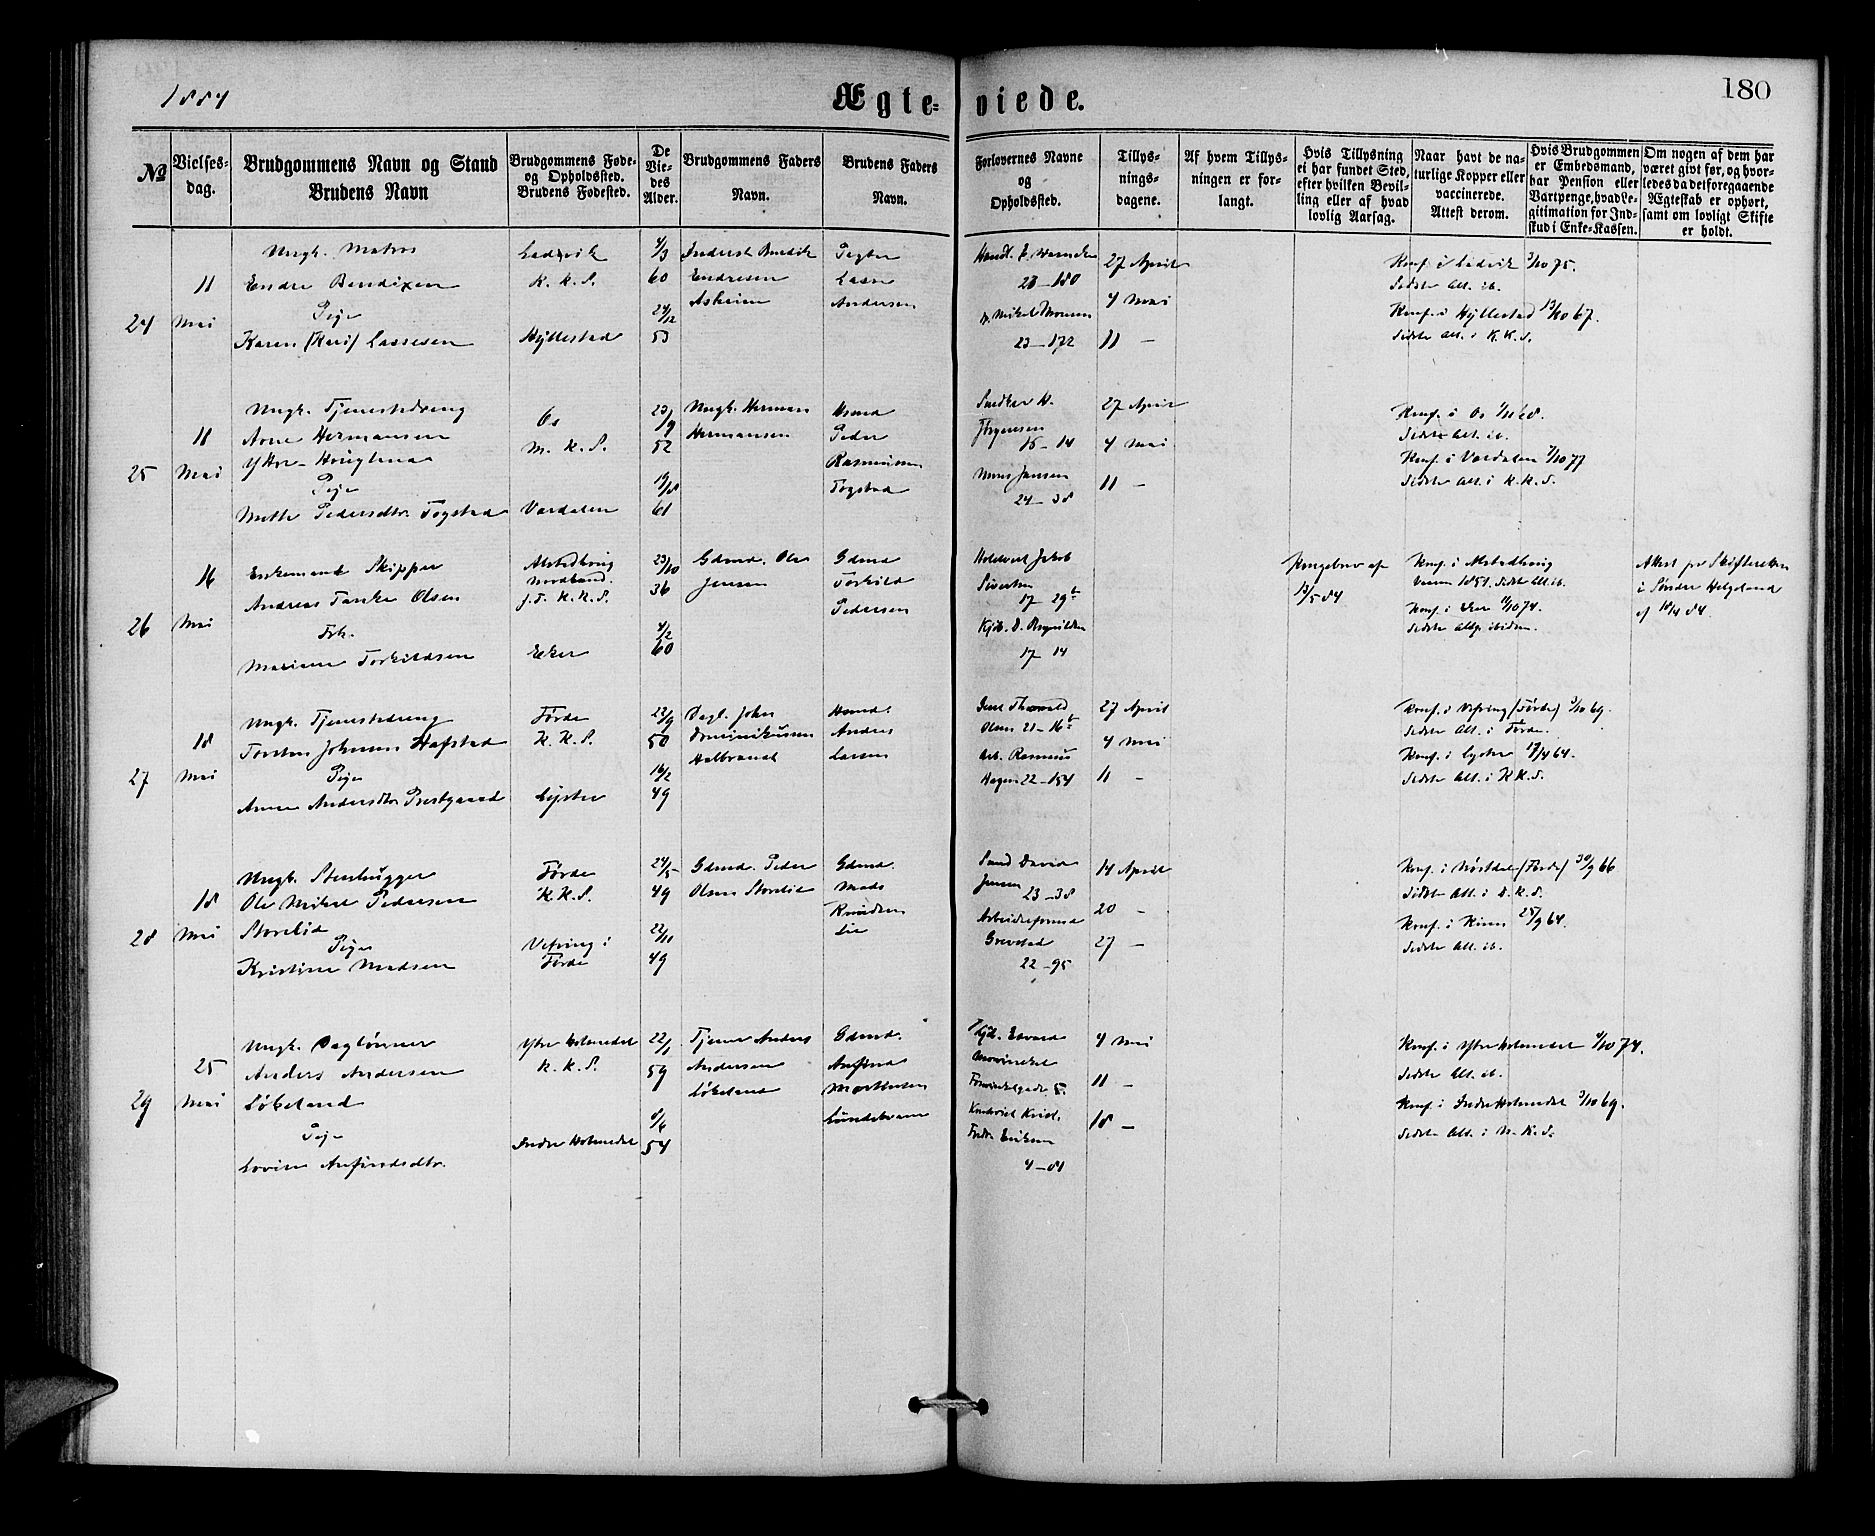 1884
Ægte-
viede.
180
№
Vielses-
dag.
Brudgommens Navn og Stand
Brudens Navn
Brudgommens Føde-
og Opholdssted.
Brudens Fødested.
De
Vie-
des
Alder.
Brudgommens Faders
Navn.
Brudens Faders
Navn.
Forlovernes Navne
og
Opholdssted.
Tillys-
nings-
dagene.
Af hvem Tillys-
ningen er for-
langt.
Hvis Tillysning
ei har fundet Sted,
efter hvilken Bevil-
ling eller af hvad
lovlig Aarsag.
Naar havt de na-
turlige Kopper eller
vaccinerede.
Attest derom.
Hvis Brudgommen
er Embedsmand,
har Pension eller
Vartpenge, hvad Le-
gitimation for Ind-
skud i Enke-Kassen.
Om nogen af dem har
været gift før, og hvor-
ledes da det foregaaende
Ægteskab er ophørt,
samt om lovligt Skifte
er holdt.
24
11
Mai
Ungk. Matros
Endre Bendixen
Pige
Karen (Kari) Lassesen
Ladvik
K. K. S.
Hyllestad
4/3
60
24/12
53
Endresen
Åsheim
Lasse
Andersen
23–180
23–172
27 April
4 Mai
11 –
Konf. i Ladvik 3/10 75.
Sidste Alt. ib.
Konf. i Hyllestad 13/10 67.
Sidste Alt. i K. K. S.
25
18
Mai
Ungk. Tjenestedreng
Arne Hermansen
Pige
Mette Pedersdtr. Fogstad
Os
M. K. S.
Vardalen
23/9
52
19/8
61
Ungk. Herman
Hermansen
Peder
Rasmussen
Fogstad
Snedker H.
15–14
Jansen
24–38
27 April
4 Mai
11 –
Konf. i Os 1/11 68.
Sidste Alt. ib.
Konf. i Vardalen 7/10 77
Sidste Alt. i K. K. S.
26
16
Mai
Enkemand Skipper
Andreas Tanke Olsen
Frk.
Mariane Torkildsen
Alstadhoug
Nordland.
f. T. K. K. S.
Eker
23/10
36
4/2
60
Gdmd. Ole
Jensen
Gdmd
Torkild
Pedersen
Jakob
Sivertsen
17 29b
17 14
Kongebrev af
13/5 84.
Konf. i Alstadhoug
1851. Sidste Alt. ib.
Konf. i Eker 11/10 74.
Sidste Altg. ibidem.
Attest fra Skifteretten
i Søndre Helgeland
af 18/4 84.
27
18
Mai
Ungk. Tjenestedreng
Torsten Johnsen Hafstad
Pige
Anna Andersdtr. Prestgaard
Førde
K. K. S.
Lyster
22/9
50
16/2
49
Dagl. John
Halbrandt
Husmd.
Anders
Larsen
Olsen 21–16b
Arb. Rasmus
Hagen 22–154
27 April
4 Mai
11 –
Konf. i Vefring (Førde) 3/10 69.
Sidste Alt. i Førde.
Konf. i Lyster 17/4 64.
Sidste Alt. i K. K. S.
28
18
Mai
Ungk. Stenhugger
Ole Mikal Pedersen
Storelid
Pige
Kristine Madsen
Førde
K. K. S.
Vefring i
Førde
24/5
49
22/11
49
Gdmd. Peder
Olsen Storelid
Gdmd.
Mads
Knudsen
Lie
David
Jensen
23–38
Arbeidsformd
Grevstad
22–95
14 April
20 –
27 –
Konf. i Nøstdal (Førde) 30/9 66
Sidste Alt. i K. K. S.
Konf. i Kinn 25/9 64.
Sidste Alt. ib.
29
25
Mai
Ungk. Daglønner
Anders Andersen
Løkeland
Pige
Lovise Anfindsdtr.
Ytre Holmedal
K. K. S.
Indre Holmedal
22/1
59
8/6
54
Tjener Anders
Andersen
Løkeland
Gdmd.
Anfind
Marthinsen
Kjb. Edvard
Eriksen
4–81
4 Mai
11 –
18 –
Konf. i Ytre Holmedal 4/10 74.
Sidste Alt. ib.
Konf. i Indre Holmedal 3/10 69.
Sidste Alt. i N. K. S.